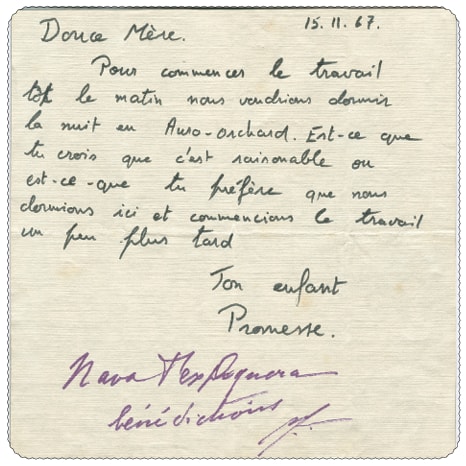 15.11.67.
Douce Mère.
Pour commencer le travail
tôt le matin nous voudrions dormir
la nuit en Auro-orchard. Est-ce que
tu crois que c'est raisonable ou
est-ce-que tu préfère que nous
dormions ici et commencions le travail
un peu plus tard
Ton enfant
Promesse.
Nava t'expliquera
bénédictions